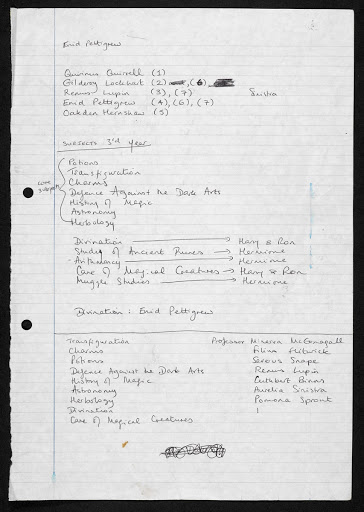 Enid Pettigrew
Quirinus Quirrell (1)
Gilderoy Lockhart (2) , (6),
Remus Lupin (3), (7) Sinistra
Enid Pettigrew (4), (6), (7)
Oakden Hernshaw (5)
SUBJECTS 3rd year
core subjects
Potions
Transfiguration
Charms
Defence Against the Dark Arts
History of Magic
Astronomy
Herbology
Divination → Harry & Ron
Study of Ancient Runes → Hermione
Arithmancy → Hermione
Care of Magical Creatures → Harry & Ron
Muggle Studies → Hermione
Divination : Enid Pettigrew
Transfiguration Professor Minerva McGonagall
Charms Filius Flitwick
Potions Severus Snape
Defence Against the Dark Arts Remus Lupin
History of Magic Cuthbert Binns
Astronomy Aurelia Sinistra
Herbology Pomona Sprout
Divination
Care of Magical Creatures